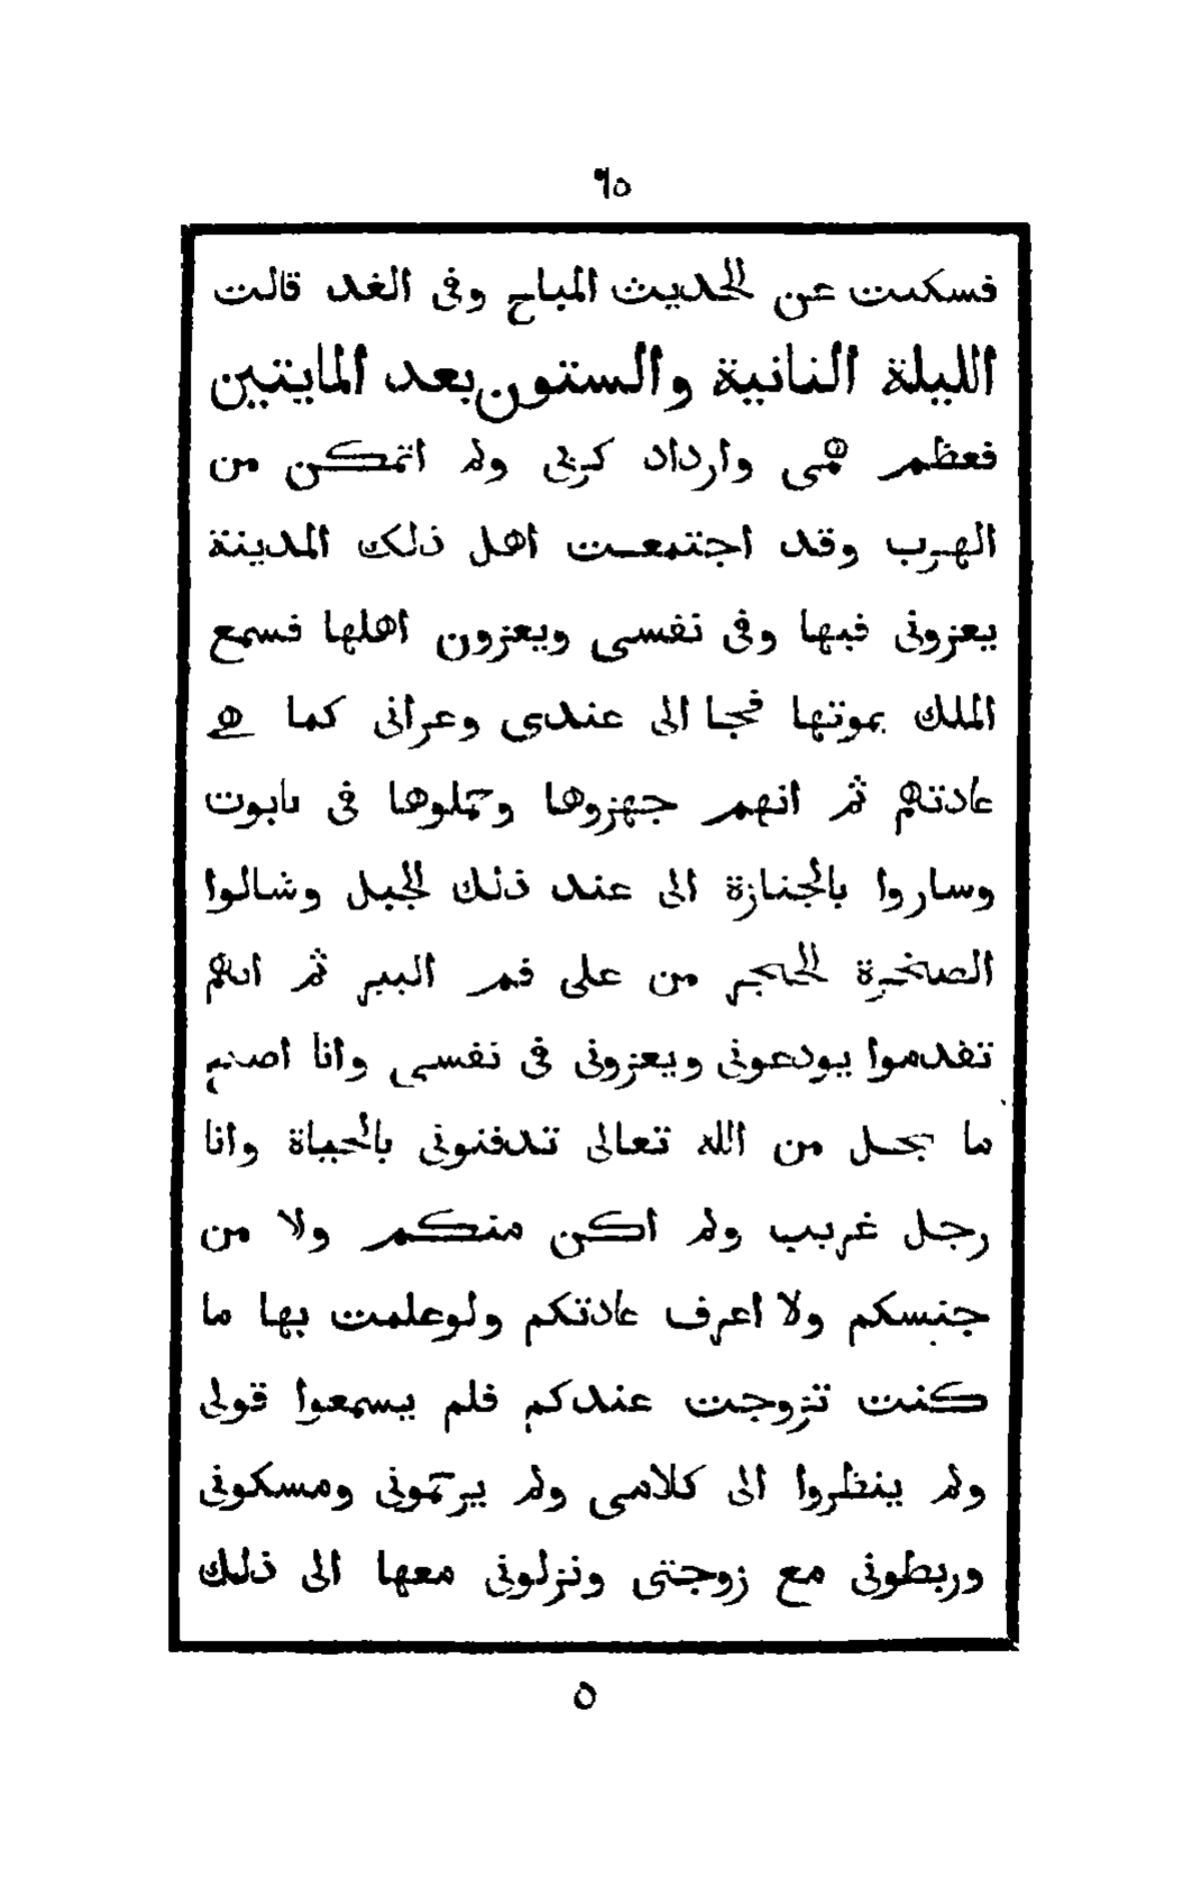 ٦٥
فسكتت عن الحديث المباح وفى الغد قالت
الليلة الثانية والستون بعد المايتين
فعظم همى وازداد كربى ولم اتمكن من
الهرب وقد اجتمعت اهل ذلك المدينة
يعزونى فيها وفى نفسى ويعزون اهلها فسمع
الملك بموتها فجا الى عندى وعزانى كما هى
عادتهم ثم انهم جهزوها وحملوها فى تابوت
وساروا بالجنازة الى عند ذلك الجبل وشالوا
الصخرة الحجر من على فم البير ثم انهم
تقدموا يودعونى ويعزونى فى نفسى وانا اصيح
ما يحل من الله تعالى تدفنونى بالحياة وانا
رجل غريب ولم اكن منكم ولا من
جنسكم ولا اعرف عادتكم ولو علمت بها ما
كنت تزوجت عندكم فلم يسمعوا قولى
ولم ينظروا الى كلامى ولم يرحمونى ومسكونى
وربطونى مع زوجتى ونزلونى معها الى ذلك
٥